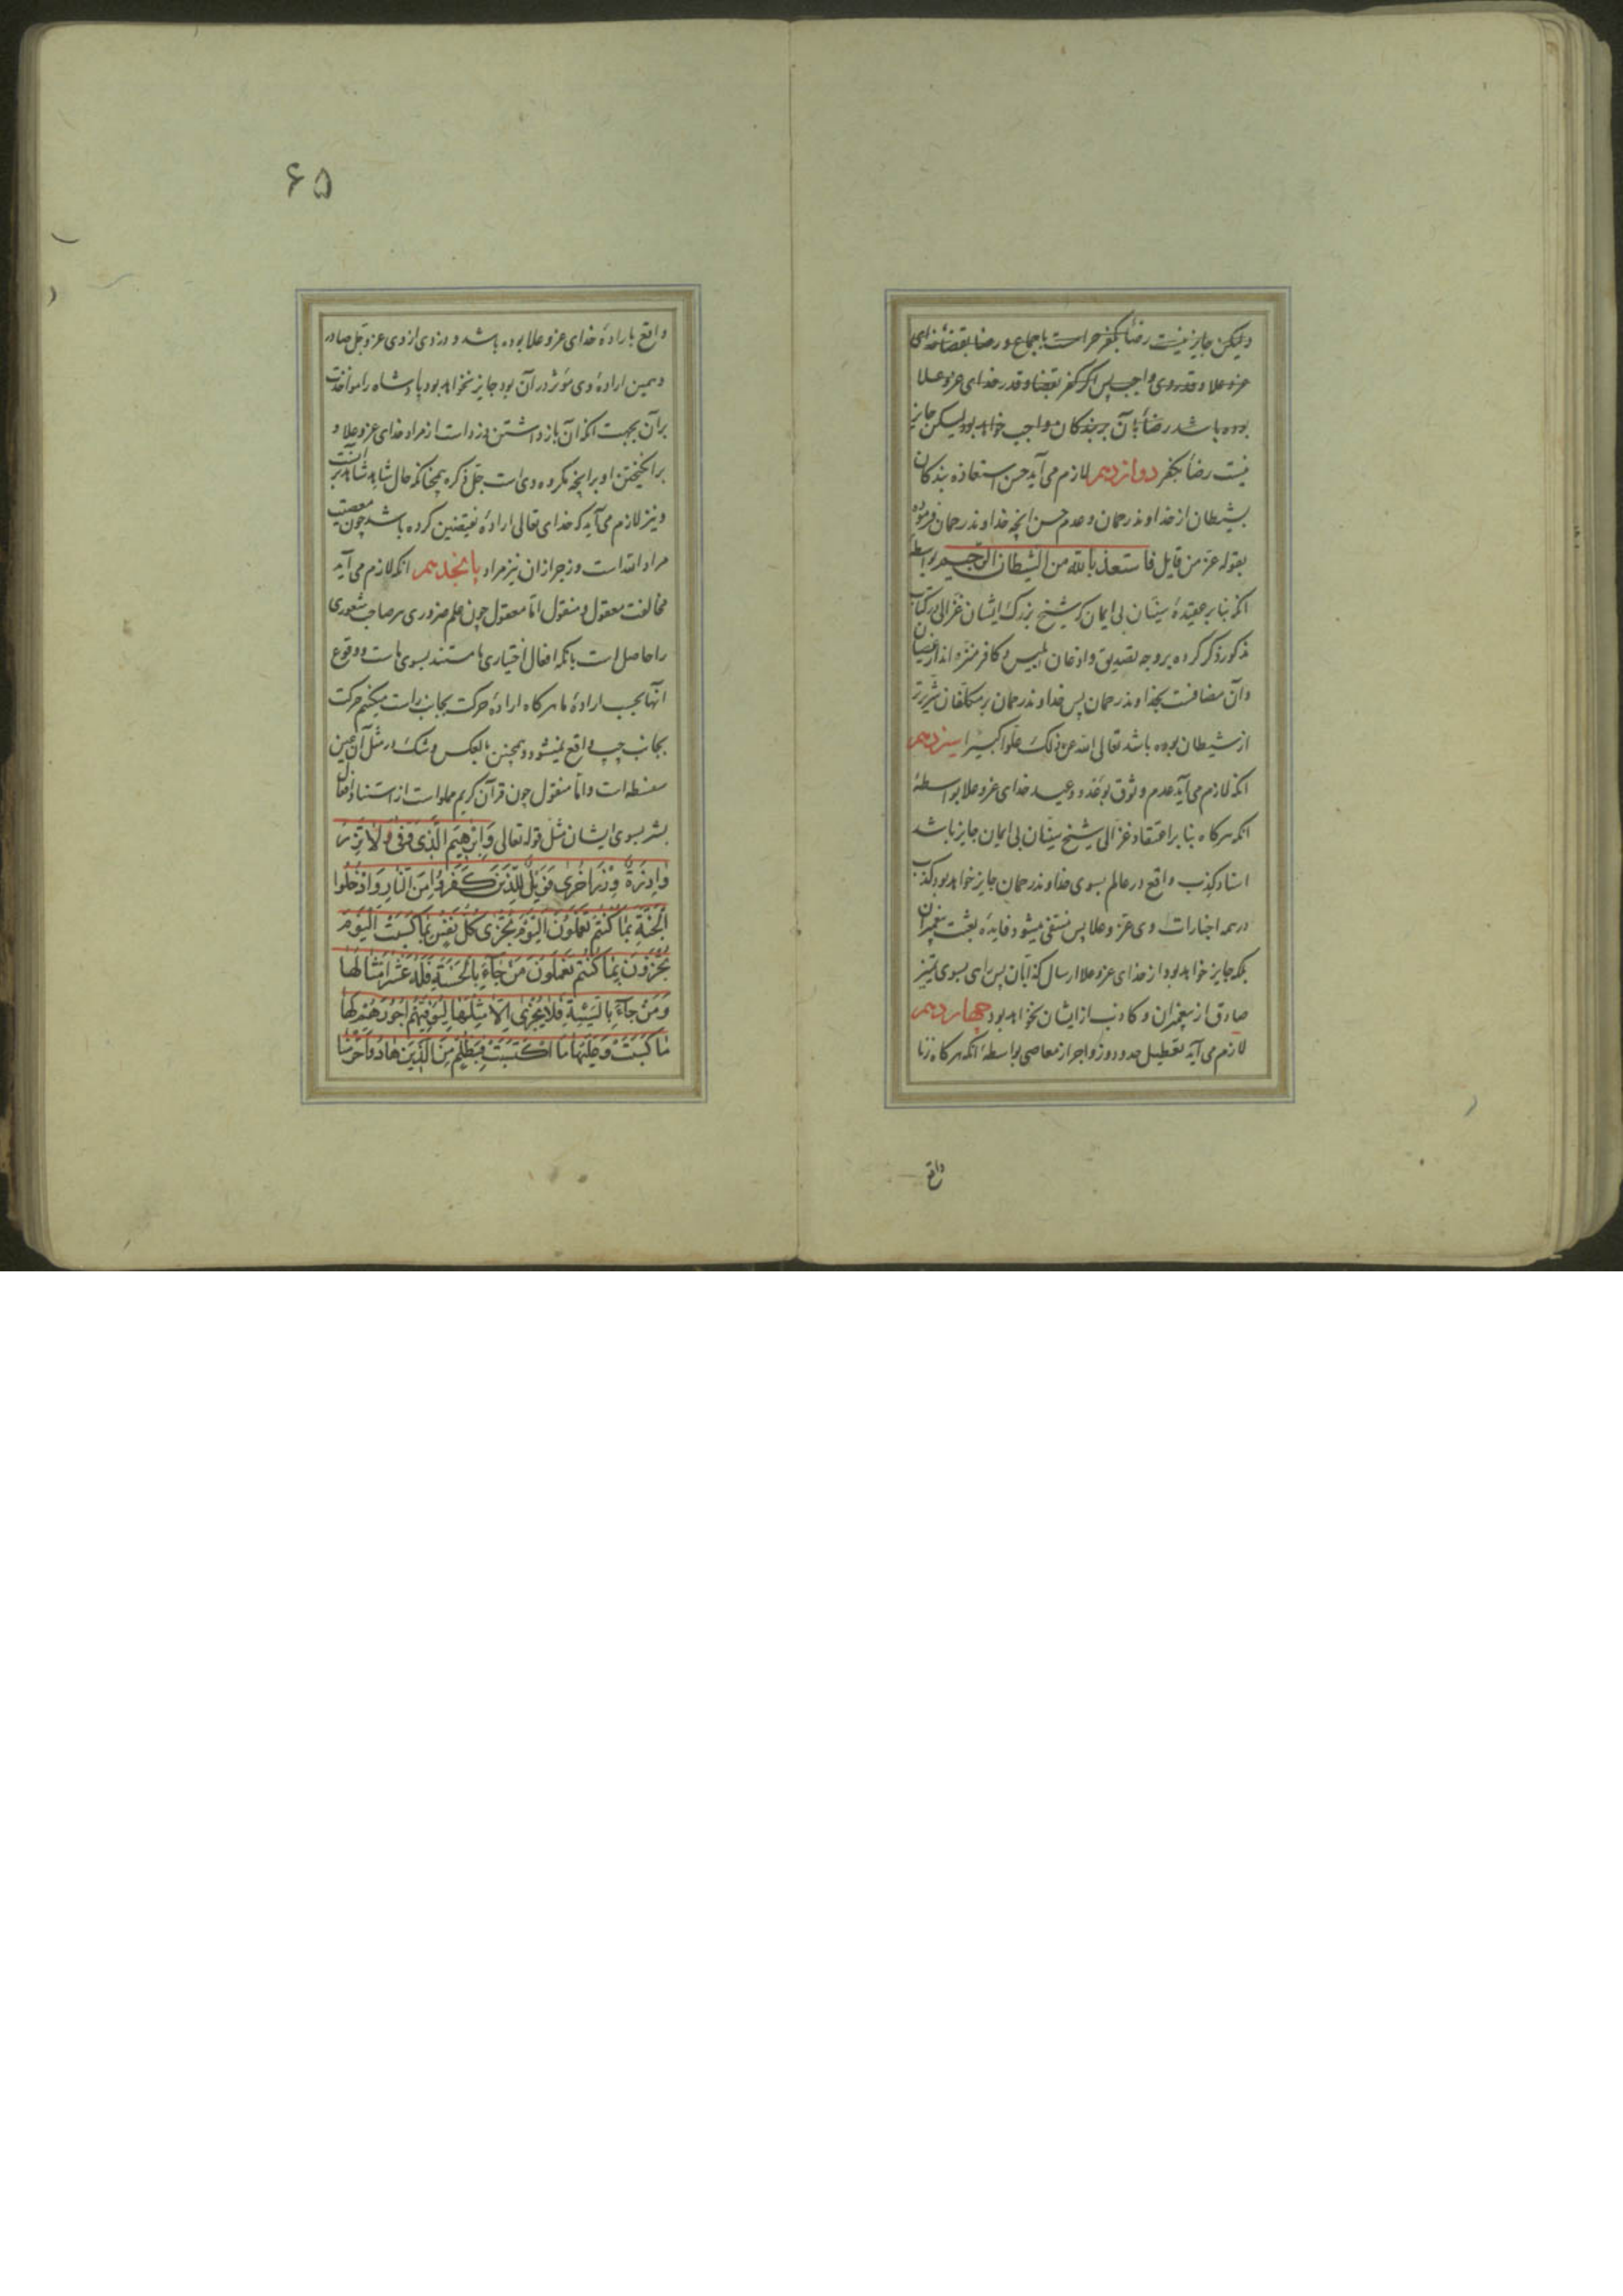 ولیکن جایز نیست رضا بکفر حرام است باجماع و رضا بقضاء خدای
عزوعلا و قدر وی واجب پس اگر کفر بقضا و قدر خدای عزوعلا
بوده باشد رضا بآن بر بندگان واجب خواهد بود لیکن جایز
نیست رضا بکفر دوازدهم لازم می آید حسن استعاذه بندگان
بشیطان از خداوند رحمان و عدم حسن انچه خداوند رحمان فرموده
بقوله عز من قایل فاستعذ بالله من الشیطان الرجیم بواسطه
انکه بنا بر عقیدهٔ سنیان بی ایمان که شیخ بزرگ ایشان غزالی در کتاب
مذکور ذکر کرده بر وجه تصدیق و اذعان ابلیس و کافر منزه اند از عصیان
و آن مضافست بخداوند رحمان پس خداوند رحمان بر مکلفان شریرتر
از شیطان بوده باشد تعالی الله عن ذلک علوا کبیرا سیزدهم
انکه لازم می آید عدم وثوق بوعد و وعید خدای عزوعلا بواسطهٔ
انکه هرگاه بنا بر اعتقاد غزالی شیخ سنیان بی ایمان جایز باشد
اسناد کذب واقع در عالم بسوی خداوند رحمان جایز خواهد بود کذب
در همه اخبارات وی عز و علا پس منتفی میشود فایدهٔ بعثت پیغمبران
بلکه جایز خواهد بود از خدای عزوعلا ارسال کذابان پس راهی بسوی تمیز
صادق از پیغمبران و کاذب از ایشان نخواهد بود چهاردهم
لازم می آید تعطیل حدود و زواجر از معاصی بواسطهٔ انکه هرگاه زنا
واقع
۶۵
واقع بارادهٔ خدای عزوعلا بوده باشد و دزدی از وی عزوجل صادر
و همین ارادهٔ وی مؤثر در آن بود جایز نخواهد بود پادشاه را مواخذت
بر آن بجهت انکه آن بازداشتن دزد است از مراد خدای عزوعلا و
برانگیختن او بر انچه مکروه وی است جل ذکره همچنانکه حال شاهد شاهد بر آنست
و نیز لازم می آید که خدای تعالی ارادهٔ نقیضین کرده باشد چون معصیت
مراد الله است و زجر از ان نیز مراد پانجدهم انکه لازم می آید
مخالفت معقول و منقول اما معقول چون علم ضروری هر صاحب شعوری
را حاصل است بانکه افعال اختیاری ما مستند بسوی ماست و وقوع
آنها بحسب ارادهٔ ما هرگاه ارادهٔ حرکت بجانب راست میکنیم حرکت
بجانب چپ واقع نمیشود و همچنین بالعکس و شک در مثل آن عین
سفسطه است و اما منقول چون قرآن کریم مملو است از استناد افعال
بشر بسوی ایشان مثل قوله تعالی وَاِبْرهِیمَ الَّذِی وَفّی وَلا تَزِرُ
وازِرَةٌ وِزْرَ اُخْری فَوَیْلٌ لِلَّذِینَ کَفَرُوا مِنَ النّارِ وَادْخُلُوا
الْجَنَّةَ بِما کُنْتُمْ تَعْمَلُونَ الْیَوْمَ تُجْزی کُلُّ نَفْسٍ بِما کَسَبَتْ الْیَوْمَ
تُجْزَوْنَ بِما کُنْتُمْ تَعْمَلُونَ مَنْ جاءَ بِالْحَسَنَةِ فَلَهُ عَشْرُ اَمْثالِها
وَمَنْ جاءَ بِالسَّیِّئَةِ فَلا یُجْزی اِلّا مِثْلَها لِیُوَفِّیَهُمْ اُجُورَهُمْ لَها
ما کَسَبَتْ وَعَلَیْها مَا اکْتَسَبَتْ فَبِظُلْمٍ مِنَ الَّذِینَ هادُوا حَرَّمْنا